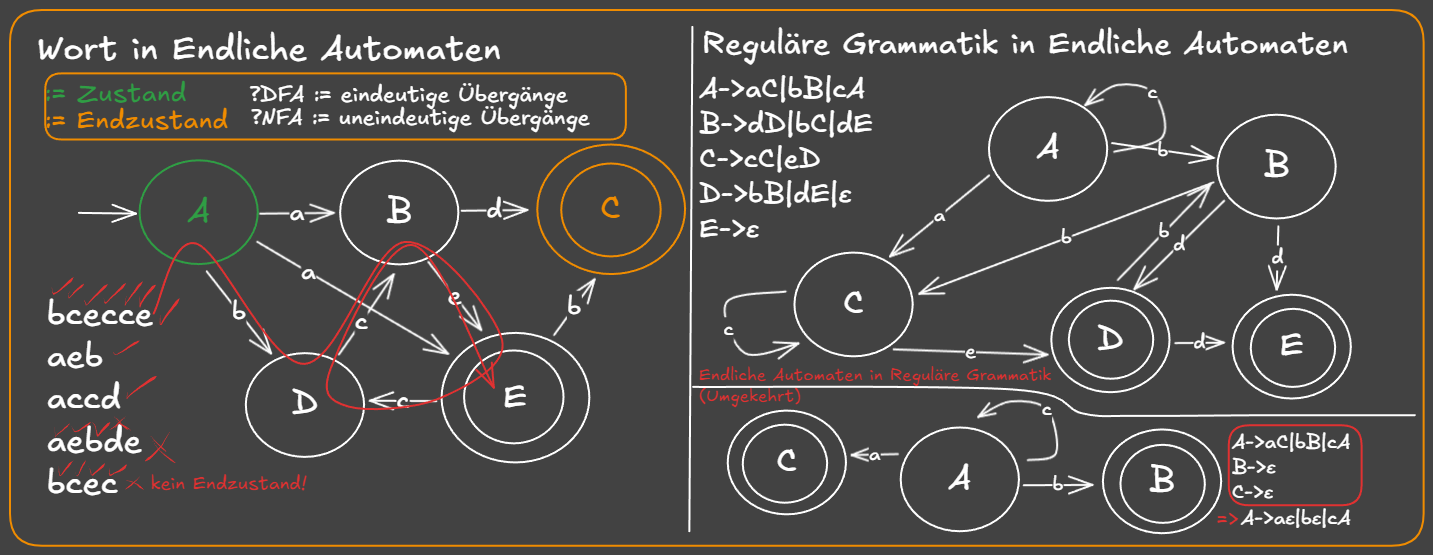 Wort in Endliche Automaten
:= Zustand
?DFA := eindeutige Übergänge
:= Endzustand
?NFA := uneindeutige Übergänge
A
a
B
d
C
a
b
c
e
b
D
c
E
bcecce
aeb
accd
aebde
bcec
kein Endzustand!
Reguläre Grammatik in Endliche Automaten
A->aC|bB|cA
B->dD|bC|dE
C->cC|eD
D->bB|dE|ε
E->ε
A
c
b
B
a
b
b
d
d
C
c
e
D
d
E
Endliche Automaten in Reguläre Grammatik
(Umgekehrt)
C
a
A
c
b
B
A->aC|bB|cA
B->ε
C->ε
=>A->aε|bε|cA